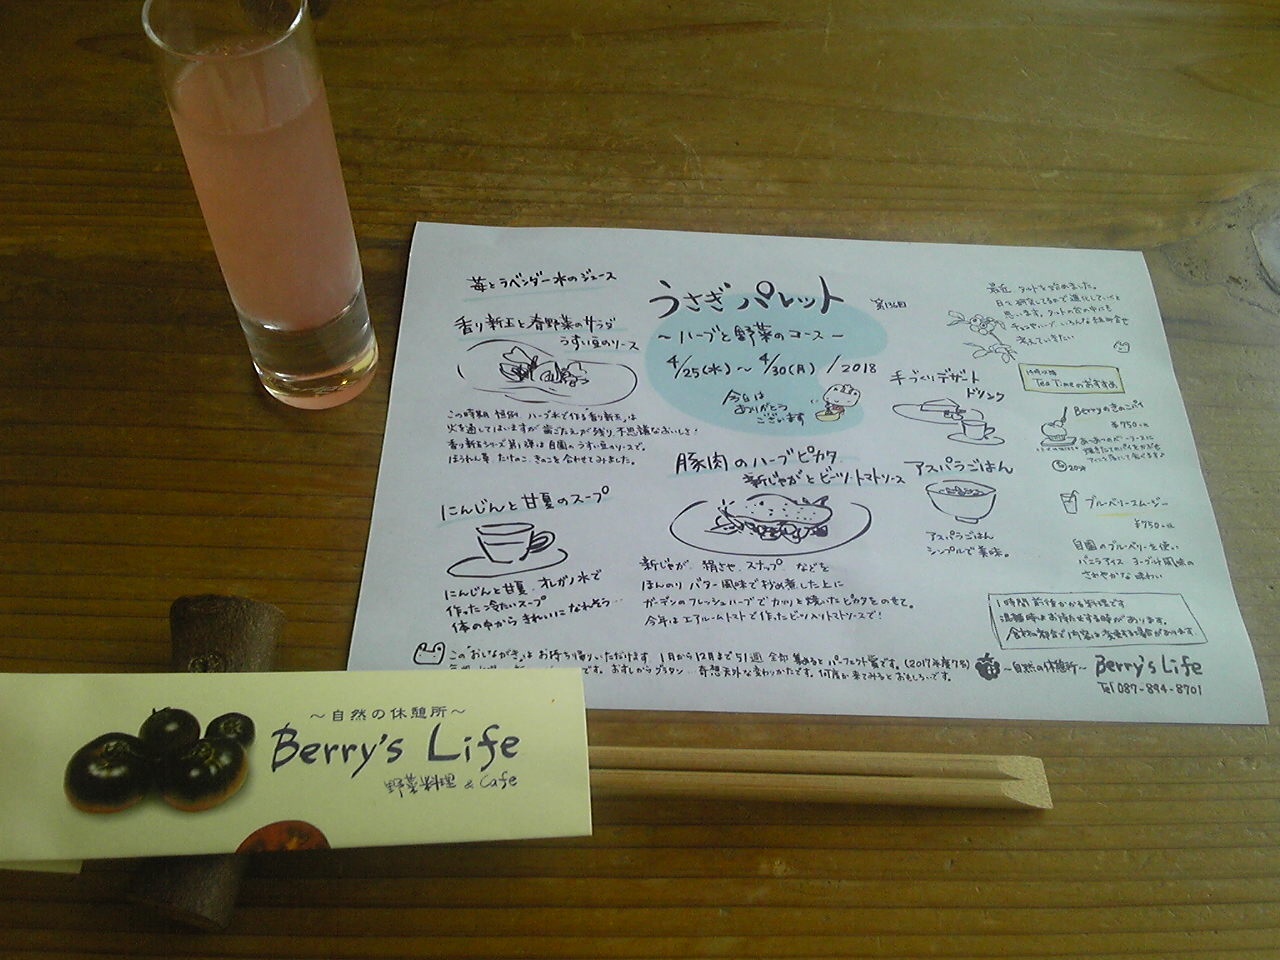 苺とラベンダー水のジュース
うさぎパレット
第136回
~ハーブと野菜のコース~
4/25(水)~4/30(月)/2018
今日は
ありがとう
ございます
香り新玉と春野菜のサラダ
うすい豆のソース
この時期 恒例、ハーブ水で作る"香り新玉"は
火を通してはいますが 歯ごたえが残り、不思議なおいしさ!
香り新玉シリーズ第1弾は自園のうすい豆のソースで。
ほうれん草、たけのこ、きのこを合わせてみました。
にんじんと甘夏のスープ
にんじんと甘夏、オレガノ水で
作った冷たいスープ
体の中から きれいになれそう…
豚肉のハーブピカタ
新じゃがとビーツ・トマトソース
新じゃが、絹さや、スナップ、などを
ほんのり バター風味で炒め煮した上に
ガーデンのフレッシュハーブでカリッと焼いたピカタをのせて。
今年はエアルームトマトで作ったビーツ入りトマトソースで!
手づくりデザート
ドリンク
アスパラごはん
アスパラごはん
シンプルで美味。
最近 タルトを始めました。
日々研究してるので進化していくと
思います。タルトの台の中にも
考えていきたい
Tea Timeのおすすめ
Berryのきのこパイ
¥750
ブルーベリースムージー
¥750
自園のブルーベリーを使い
バニラアイス ヨーグルト風味の
さわやかな味わい
1時間前後かかる料理です
混雑時はお待たせする時があります。
この"おしながき"は お持ち帰りいただけます 1月から12月まで51週 全部 集めると パーフェクト賞です。(2017年度7名)
です。おすしからグラタン…奇想天外な変わりかたです。何度か来てみるとおもしろいです。
~自然の休憩所~ Berry's Life
Tel 087-894-8701
~自然の休憩所~
Berry's Life
野菜料理 & Cafe